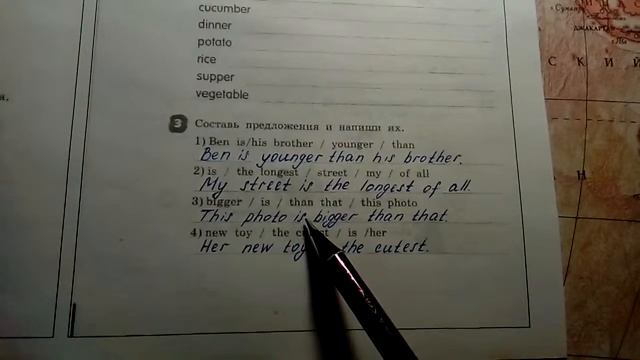 cucumber
dinner
potato
rice
supper
vegetable
3 Составь предложения и напиши их.
1) Ben is/his brother / younger / than
Ben is younger than his brother.
2) is / the longest / street / my / of all
My street is the longest of all.
3) bigger / is / than that / this photo
This photo is bigger than that.
4) new toy / the / is /her
Her new toy the cutest.
С К И Й
Н